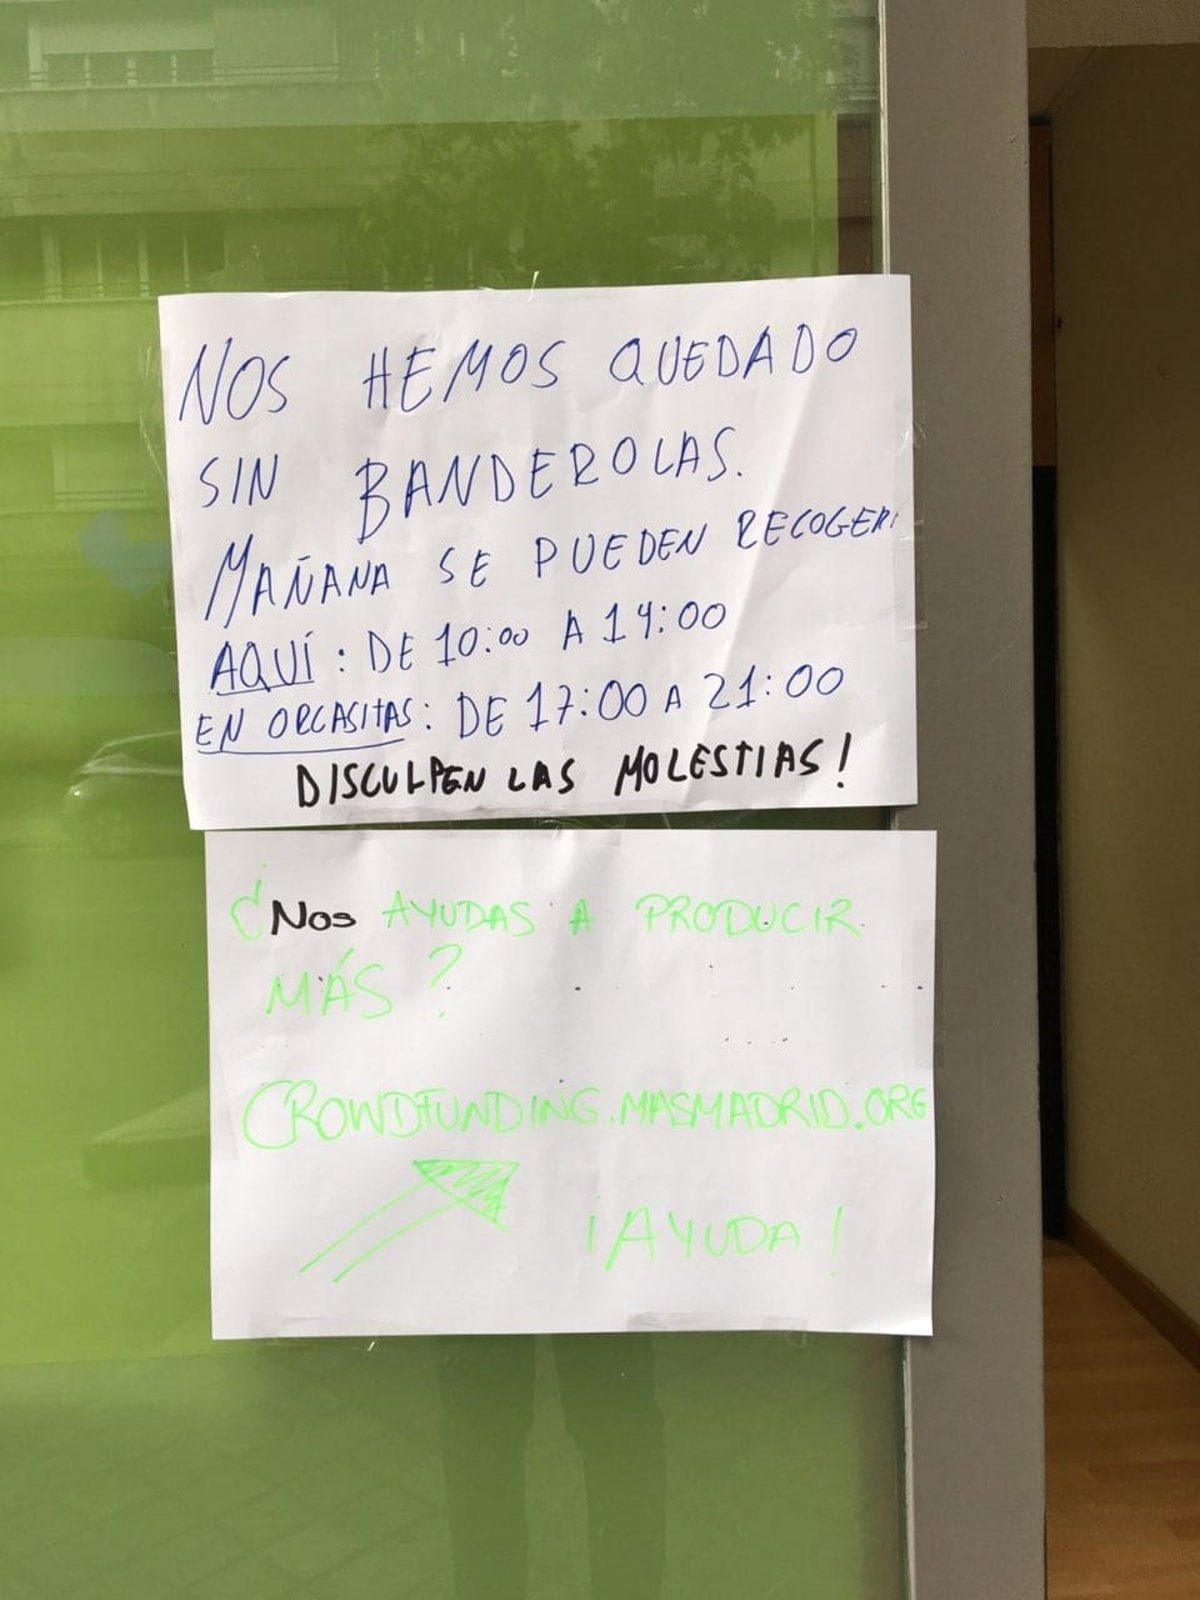 NOS HEMOS QUEDADO
SIN BANDEROLAS.
MAÑANA SE PUEDEN RECOGER:
AQUÍ: DE 10:00 A 14:00
EN ORCASITAS: DE 17:00 A 21:00
DISCULPEN LAS MOLESTIAS!
¿Nos AYUDAS A PRODUCIR
MÁS?
CROWDFUNDING.MASMADRID.ORG
¡AYUDA!